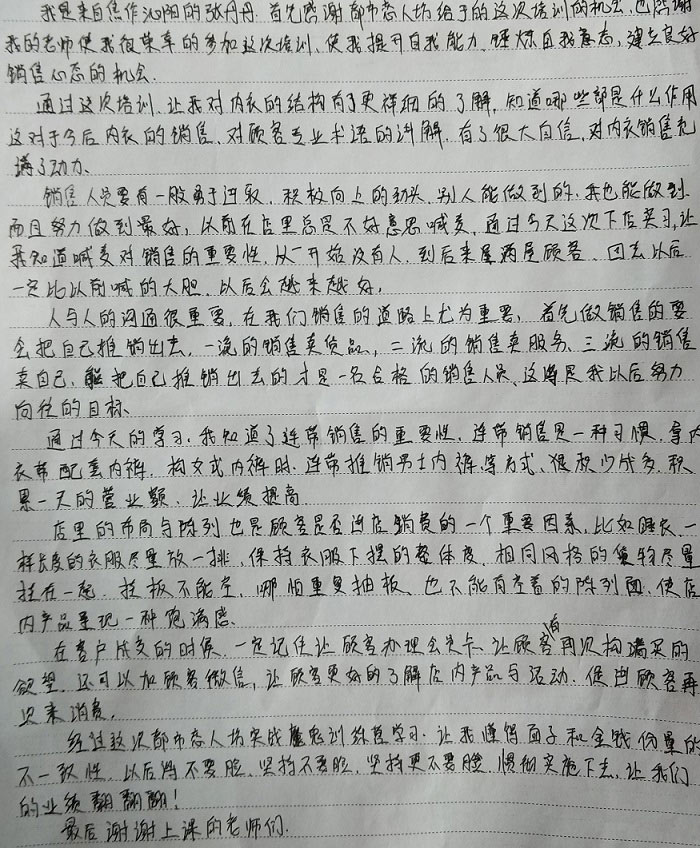 我是来自焦作沁阳的张丹丹.首先感谢都市恋人坊给予的这次培训的机会,也感谢
我的老师使我很荣幸的参加这次培训、使我提升自我能力,锻炼自我意志,建立良好
销售心态的机会.
通过这次培训、让我对内衣的结构有了更祥细的了解,知道哪些部是什么作用
这对于今后内衣的销售、对顾客专业术语的讲解,有了很大自信,对内衣销售充
满了动力、
销售人员要有一股勇于进取、积极向上的劲头,别人能做到的、我也能做到.
而且努力做到最好,从前在店里总是不好意思喊麦,通过今天这次下店实习,让
我知道喊麦对销售的重要性、从一开始没有人,到后来屋满屋顾客、回去以后
一定比以前喊的大胆、以后会越来越好,
人与人的沟通很重要,在我们销售的道路上尤为重要,首先做销售的要
会把自己推销出去,一流的销售卖货品,二流的销售卖服务、三流的销售
卖自己,能把自己推销出去的才是一名合格的销售人员、这将是我以后努力
向往的目标、
通过今天的学习、我知道了连带销售的重要性、连带销售是一种习惯、拿内
衣带配套内裤、构文式内裤时、连带推销男士内裤、等方式、很积少成多,积
累一天的营业额、让业绩提高
店里的布局与陈列也是顾客是否进店销费的一个重要因素,比如睡衣、一
样长度的衣服尽量放一排、保持衣服下摆的整体度、相同风格的货物尽量
挂在一起、挂板不能空、哪怕重复抽板、也不能有空着的陈列面、使店
内产品呈现一种饱满感、
在客户成交的时候、一定记住让顾客办理会员卡、让顾客有再次构满买的
欲望、还可以加顾客微信,让顾客更好的了解店内产品与活动、促进顾客再
次来消费,
经过这次都市恋人坊实战魔鬼训练营学习、让我懂得面子和金钱份量的
不一致性、以后将不要脸、坚持不要脸、坚持更不要脸、惯彻实施下去、让我们
的业绩翻翻翻!
最后谢谢上课的老师们.